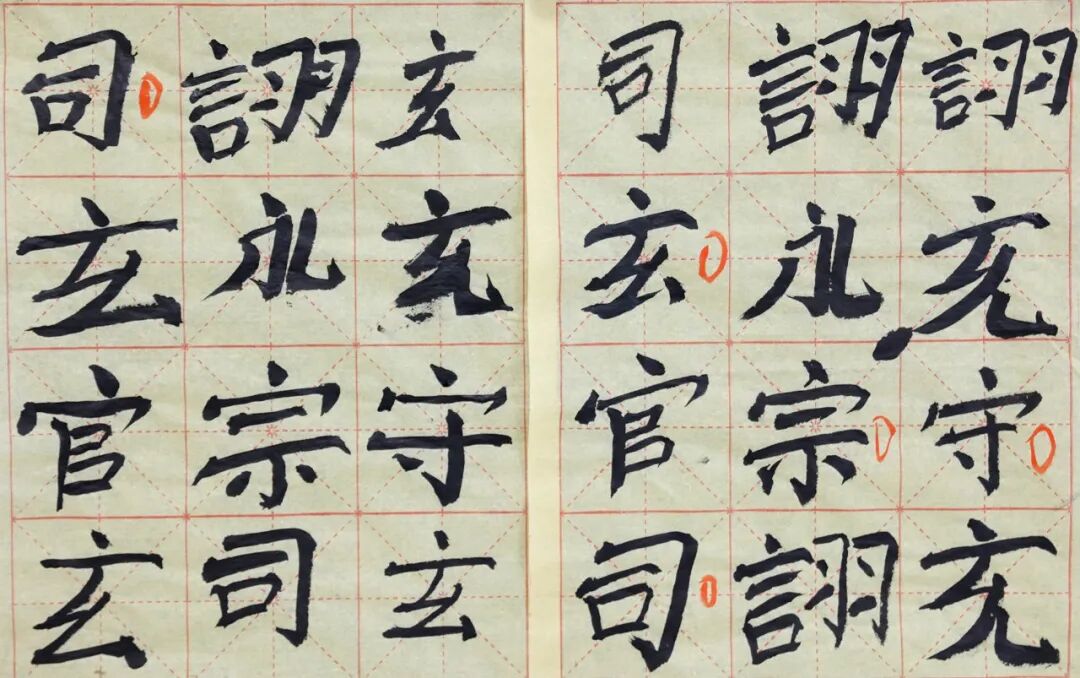 司詡玄
玄永充
官宗守
玄司玄
司詡詡
玄永充
官宗守
司詡充